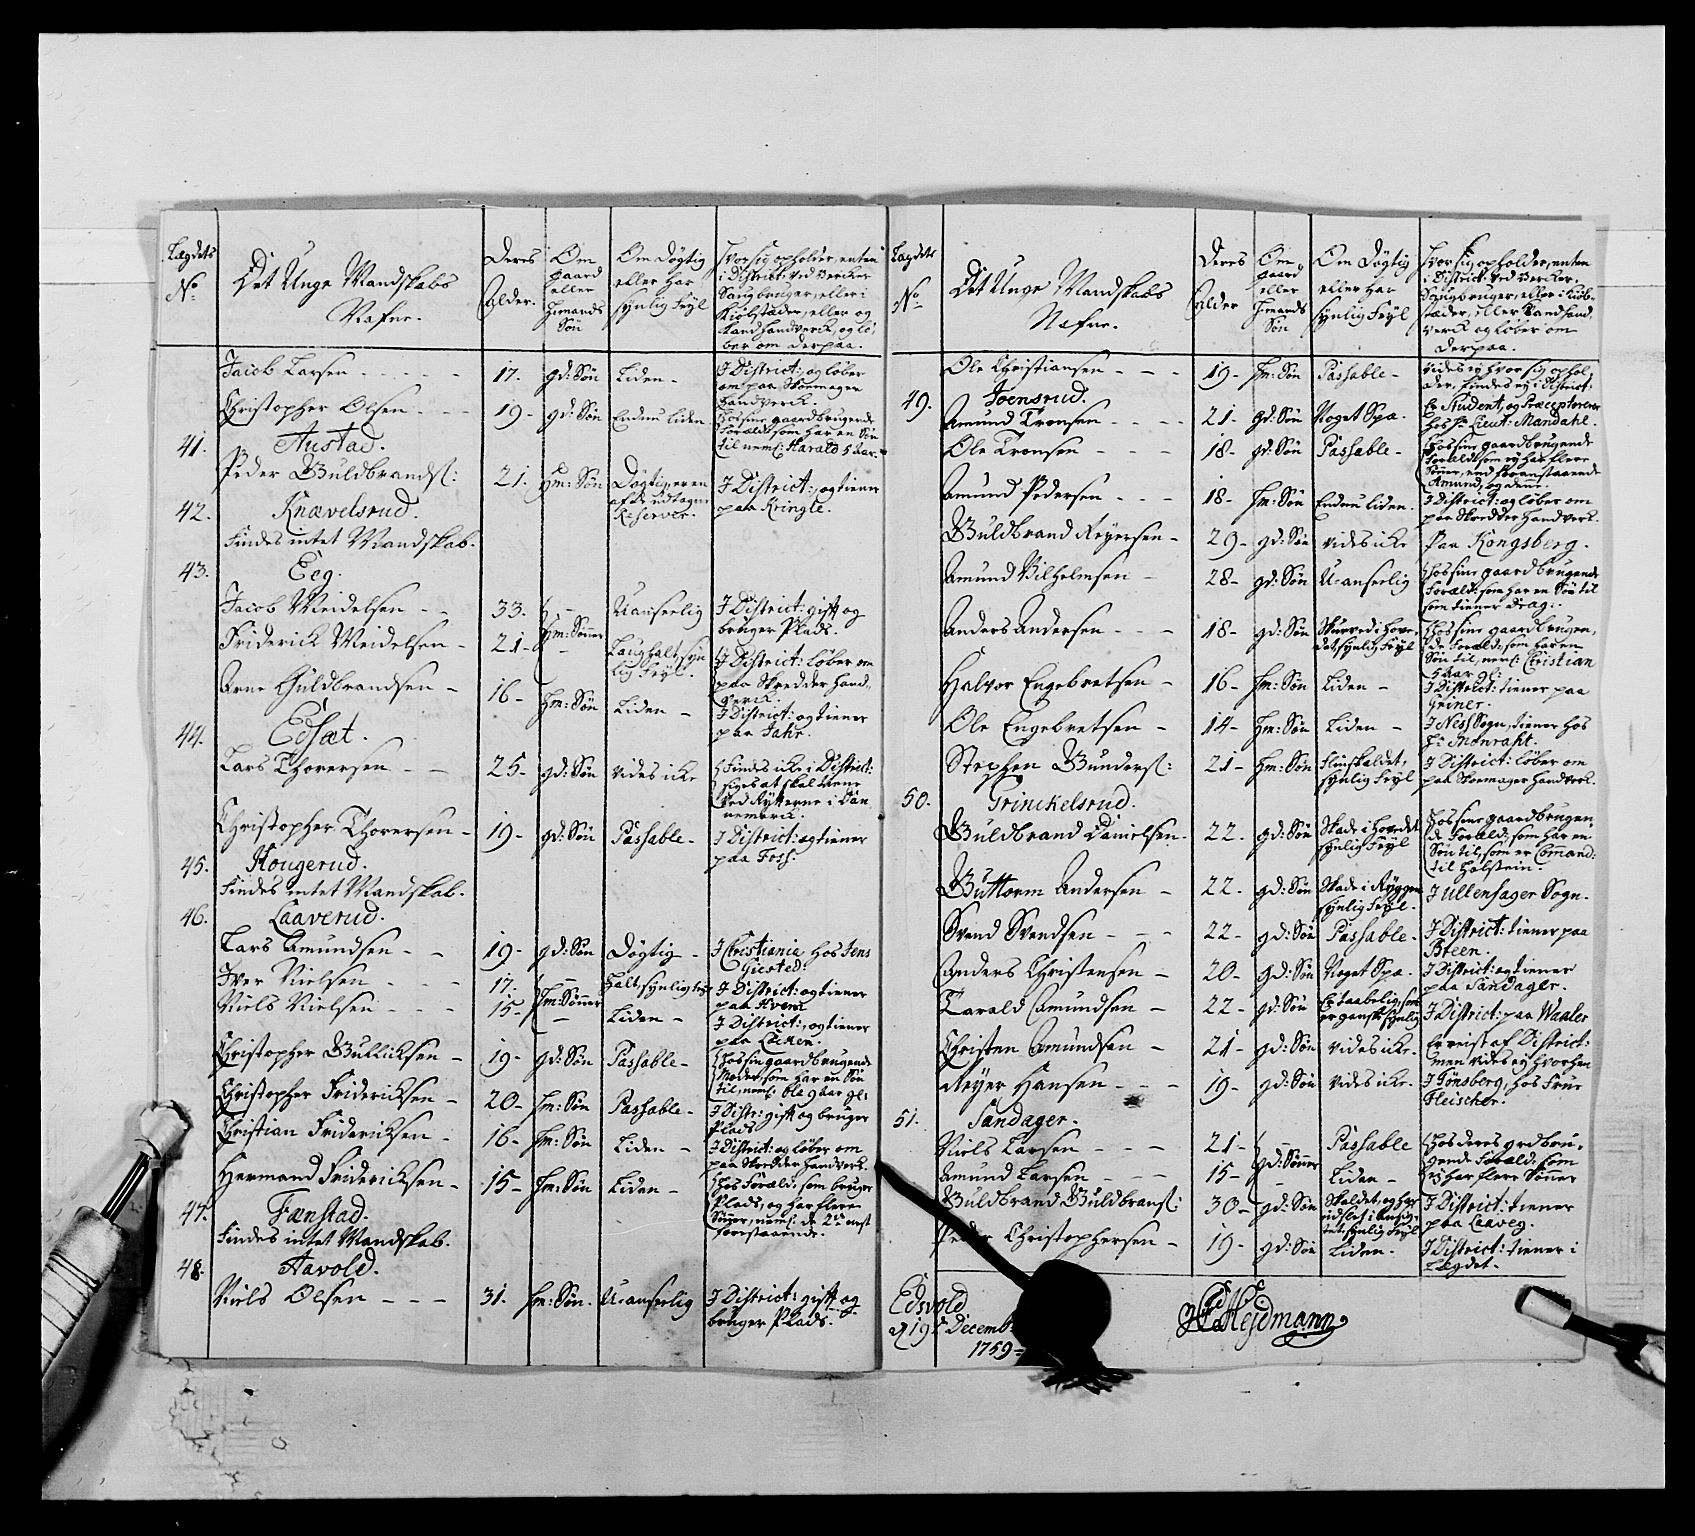 Lægdets
No
Det Unge Mandskabs
Nafne.
Deres
Alder.
Om
gaard
eller
Huusmands
Søn
Om Døgtig
eller har
synlig Feyl
hvor sig opholder, enten
i District: ved Verker
Saugbruger, eller i
Kiøbstæder, eller og
Landhandverck, og lø-
ber om derpaa.
Jacob Larsen - - - - - 17. gd: Søn Liden -
I District: og løber
om paa Skoemager
handverck.
Christopher Olsen - - - 19 - gd: Søn Endnu liden
hos sine gaardbrugende
Forældr: som har en Søn
til neml: Harald 5 aar.
41. Austad.
Peder Guldbrands: 21. Hm: Søn Døgtig, er en
af de udtagne
Reserver.
I District:, og tiener
paa Kringle.
42. Knævelsrud.
Findes intet Mandskab.
43. Eeg.
Jacob Meidelsen - - 33. Uanseelig
I District: gift og
bruger Plads.
Hm: Sønner
Friderick Meidelsen - 21 - Laughalt, syn
lig Feyl.
I District: løber om
paa Skredder hand-
verck.
Arne Guldbrandsen - 16 - Hm: Søn Liden -
I District: og tiener
paa Jahr.
44. Edsæt.
Lars Thoresen - - 25 - gd: Søn vides icke
Findes icke i District:
siges at skal tiene
ved Rytterne i Dan
nemarck.
Christopher Thoresen - 19 - gd: Søn Passable -
I District: og tiener
paa Foss.
45. Hougerud.
Findes intet Mandskab.
46. Laaverud.
Lars Amundsen - - 19 - gd: Søn Døgtig -
I Christiania hos Jens
Giested.
Iver Nielsen - - - 17. halt, synlig feyl
I District: og tiener
paa Hvam
Hm: Sønner
Niels Nielsen - - - 15 - Liden -
I District:, og tiener
paa Løcken.
Christopher Gulicksen - 19 - gd: Søn Passable -
hos sin gaardbrugende
Moder, som har en Søn
til, neml: Ole 9 aar gl:
Christopher Fridericksen - 20 - Hm: Søn Passable -
I Distr: gift og bruger
Plads
Christian Fridericksen - 16 - Hm: Søn Liden -
I District: og løber om
paa Skredder handverk.
Hermand Fridericksen - 15 - Hm: Søn Liden -
hos Foræld: som bruger
Plads, og har flere
Sønner, neml: de 2de næst
forestaaende.
47. Fænstad.
Findes intet Mandskab.
48. Aavold.
Niels Olsen - - - 31. Hm: Søn. U-anseelig
I District: gift og
bruger Plads.
Lægdets
No
Det Unge Mandskabs
Nafne.
Deres
Alder
Om
gaard
eller
Huusmands
Søn
Om Døgtig
eller har
synlig Feyl
hvor sig opholder, enten
i District: ved Verker,
Saugbruger, eller i Kiøb-
stæder, eller Landhand-
verck og løber om
derpaa.
Ole Christiansen - - - 19 - Hm: Søn Passable -
vides ey hvor sig ophol
der, findes ey i District:
49. Joensrud.
Amund Tronsen - - - 21. gd: Søn Noget Spæ.
Er Student, og Præceptorerer
hos Hr Lieut: Mandahl.
Ole Tronsen - - - 18 - gd: Søn Passable -
hos sine gaardbrugende
Foræld: som ey har flere
Sønner, end foranstaaende
Amund, og denne.
Amund Pedersen - - - 18 - Hm: Søn Endnu liden.
I District: og løber om
paa Skredder handverk.
Guldbrand Reyersen - 29 - gd: Søn vides icke
Paa Kongsberg.
Amund Vilhelmsen - 28 - gd: Søn U-anseelig
hos sine gaardbrugende
Foræld: som har en Søn til
som tiener Drag:.
Anders Andersen - - - 18 - gd: Søn Skurved i hove-
det, synlig Feyl
hos sine gaardbrugen-
de Foræld:, som har en
Søn til, neml: Christian
5 aar gl:
Halvor Engebretsen - 16 - Hm: Søn Liden -
I District: tiener paa
Griner.
Ole Engebretsen - - - 14 - Hm: Søn Liden -
I Næss Sogn, tiener hos
Hr Monraht.
Stephen Gunders: 21 - Hm: Søn Fluskaldet,
synlig Feyl
I District: løber om
paa Skoemager handverk.
50. Grinckelsrud.
Guldbrand Danielsen - 22 - gd: Søn Skade i hovedet
synlig Feyl
hos sine gaardbrugen
de Foræld:, som har en
Søn til, som er Command:
til Holstein.
Guttorm Andersen - 22 - gd: Søn Skade i Ryggen
synlig Feyl.
I Ullensager Sogn.
Svend Svendsen - - - 22 - gd: Søn Passable -
I District: tiener paa
Breen.
Anders Christensen - 20 - gd: Søn Noget Spæ.
I District: og tiener
paa Sandager.
Harald Amundsen - 22 - gd: Søn Er taabelig, som
er gansk synlig
I District: paa Waaler
Christen Amundsen - 21 - gd: Søn vides icke.
Er reist af District:
men vides ey hvorhen
Reyer Hansen - - - 19 - gd: Søn vides icke.
I Tønsberg, hos Frue
Fleischer.
51. Sandager.
Niels Larsen - - - 21 - Passable
gd: Sønner
Amund Larsen - - - 15 - Liden -
hos deres grdbru-
gende Foræld: som
ey har flere Sønner
Guldbrand Guldbrans: 30 - gd: Søn Skaldet, og har
ridset i Ansig-
tet, synlig Feyl
I District: tiener
paa Laaveg.
Peder Christophersen - 19 - gd: Søn Liden.
I District: tiener i
Lægdet.
Edsvold
d 19de Decemb:
1759 -
Hejdmann